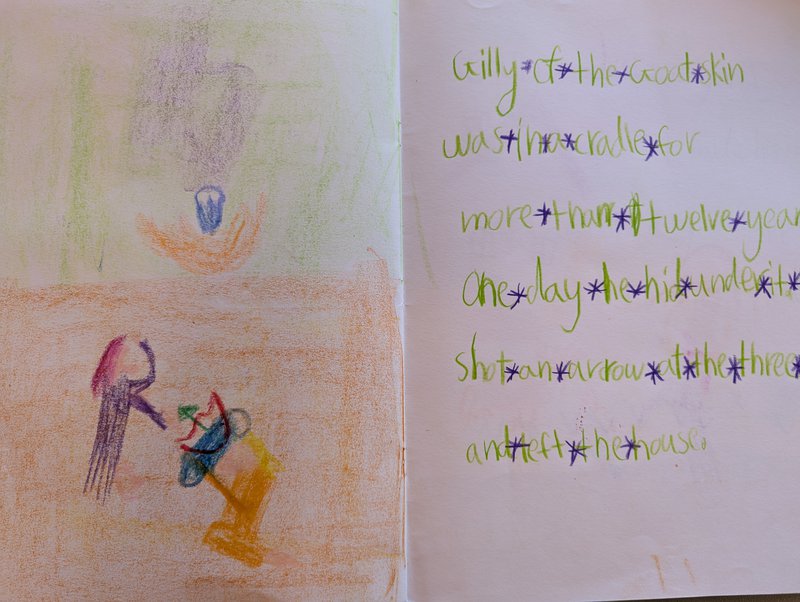 Gilly of the Goat skin
was in a cradle for
more than twelve year
One day he hid under it
shot an arrow at the three
and left the house.